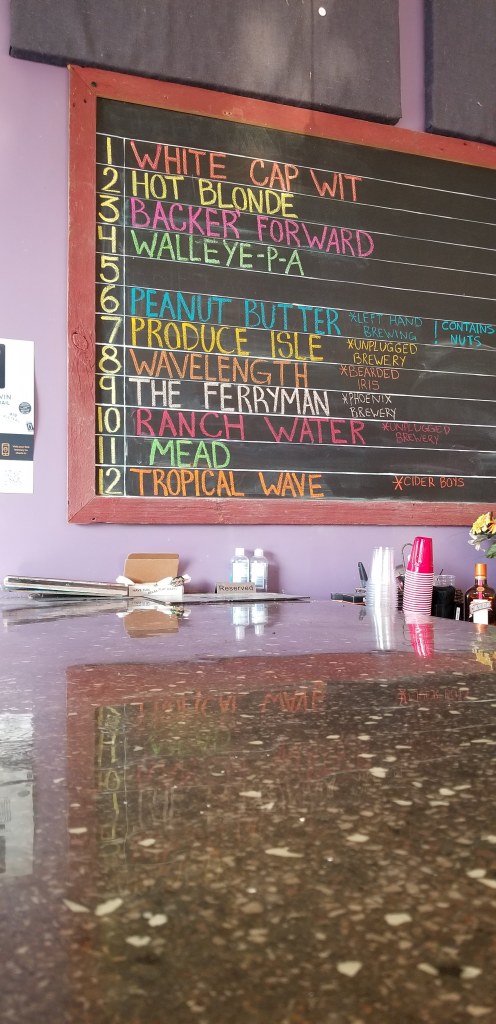 1 WHITE CAP WIT
2 HOT BLONDE
3 BACKER FORWARD
4 WALLEYE-P-A
5
6 PEANUT BUTTER *LEFT HAND BREWING ! CONTAINS NUTS
7 PRODUCE ISLE *UNPLUGGED BREWERY
8 WAVELENGTH *BEARDED IRIS
9 THE FERRYMAN *PHOENIX BREWERY
10 RANCH WATER *UNPLUGGED BREWERY
11 MEAD
12 TROPICAL WAVE *CIDER BOYS
Reserved